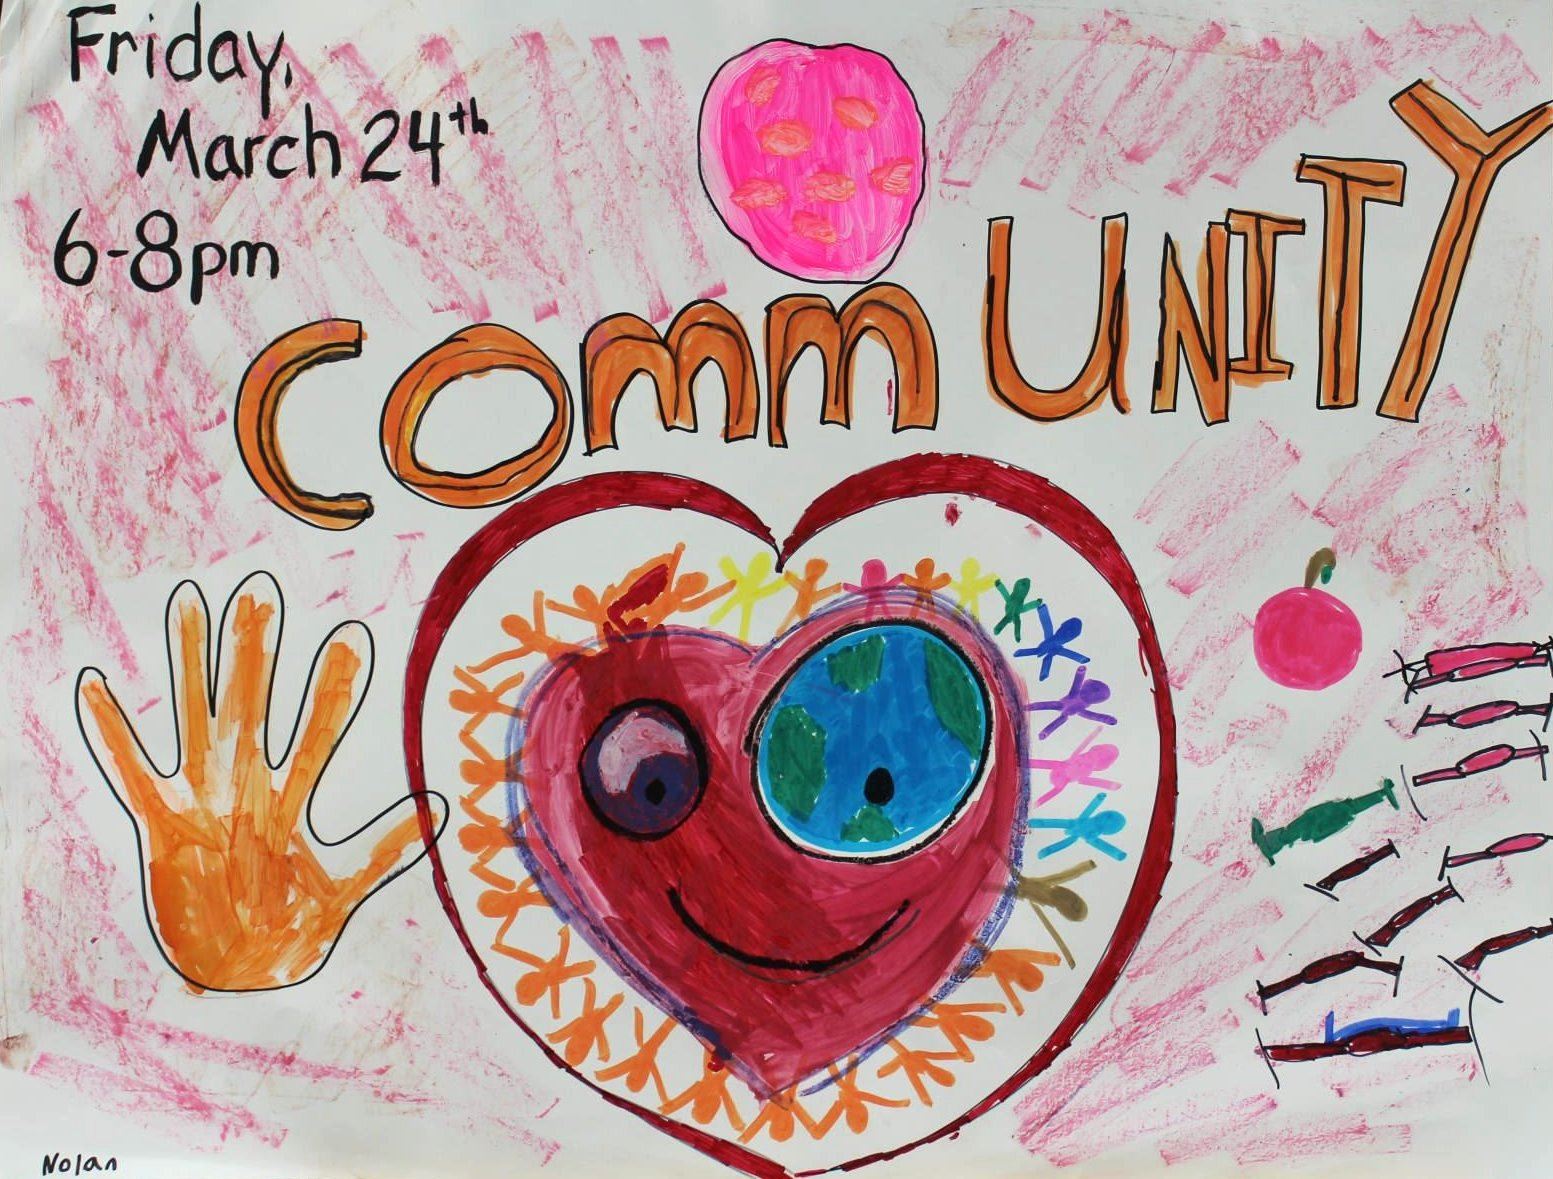 Friday,
March 24th
6-8pm
COMMUNITY
Nolan